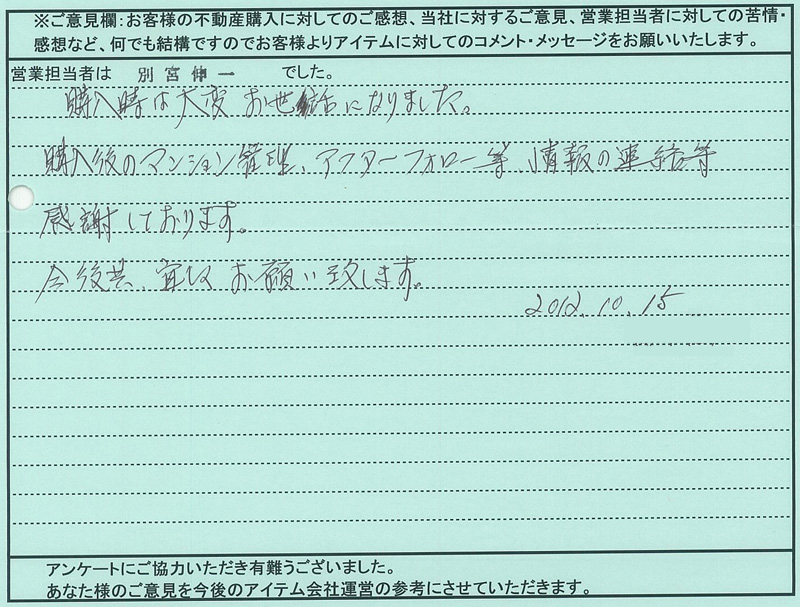 ※ご意見欄:お客様の不動産購入に対してのご感想、当社に対するご意見、営業担当者に対しての苦情・
感想など、何でも結構ですのでお客様よりアイテムに対してのコメント・メッセージをお願いいたします。
営業担当者は 別宮伸一 でした。
購入時は大変お世話になりました。
購入後のマンション管理、アフターフォロー等 情報の連絡等
感謝しております。
今後共、宜敷お願い致します。
2012.10.15
アンケートにご協力いただき有難うございました。
あなた様のご意見を今後のアイテム会社運営の参考にさせていただきます。